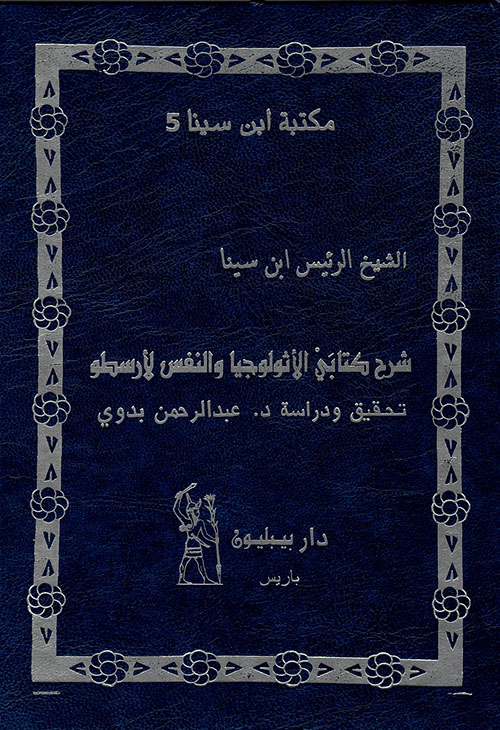 مكتبة ابن سينا 5
الشيخ الرئيس ابن سينا
شرح كتابَيْ الأثولوجيا والنفس لأرسطو
تحقيق ودراسة د. عبدالرحمن بدوي
دار بيبليون
باريس